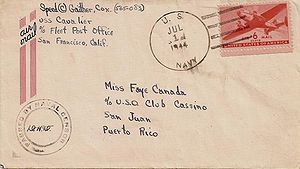 Speed G. Gaither, Cox. (505-083)
USS Cavalier
℅ Fleet Post Office
San Francisco, Calif.
air mail
U. S.
JUL
1944
NAVY
6¢
AIR MAIL
UNITED STATES OF AMERICA
Miss Faye Canada
℅ U.S.O. Club Cassino
San Juan
Puerto Rico
PASSED BY NAVAL CENSOR